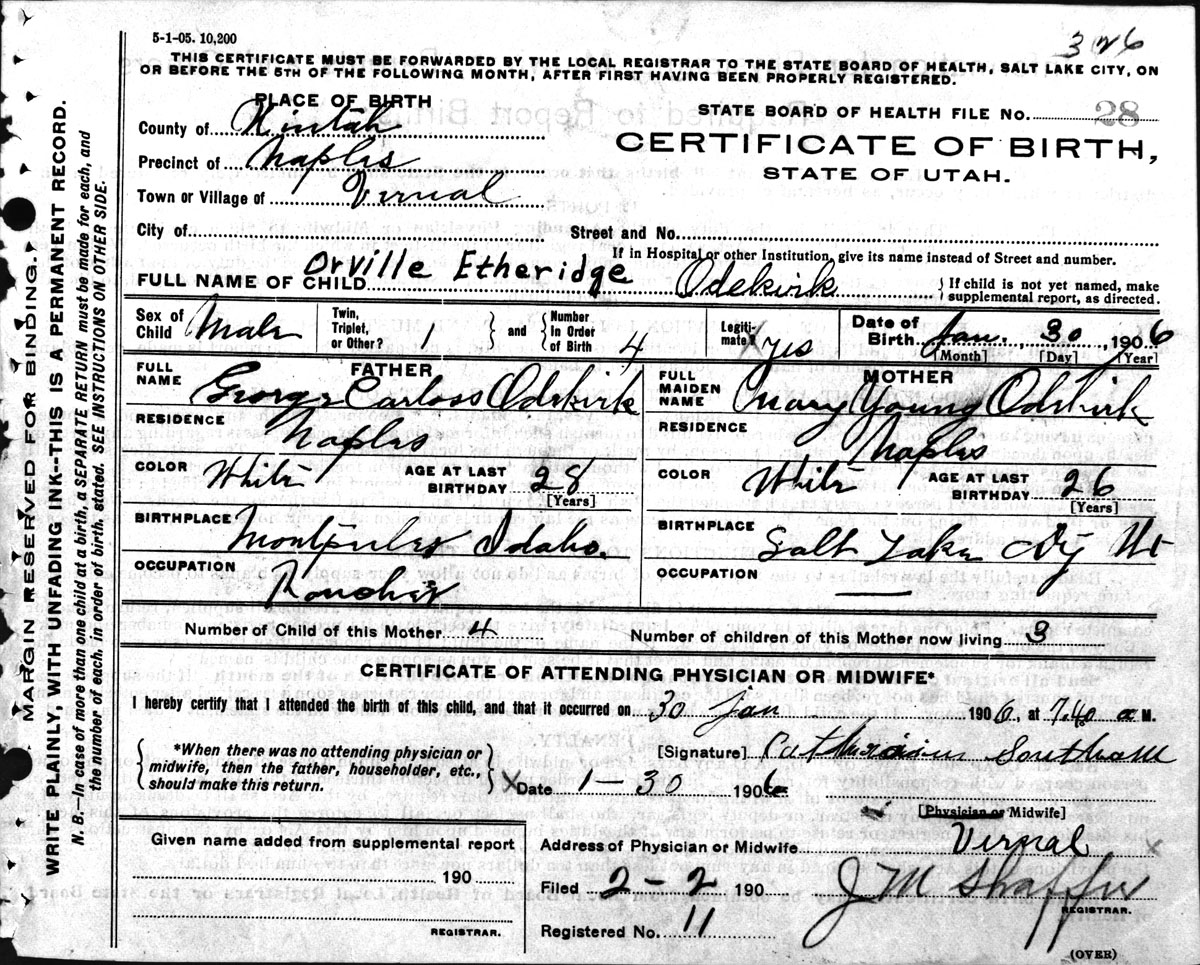 5-1-05. 10,200
326
THIS CERTIFICATE MUST BE FORWARDED BY THE LOCAL REGISTRAR TO THE STATE BOARD OF HEALTH, SALT LAKE CITY, ON
OR BEFORE THE 5TH OF THE FOLLOWING MONTH, AFTER FIRST HAVING BEEN PROPERLY REGISTERED.
PLACE OF BIRTH
STATE BOARD OF HEALTH FILE No. 28
County of
CERTIFICATE OF BIRTH,
STATE OF UTAH.
Precinct of Naples
Town or Village of Vernal
City of Street and No.
If in Hospital or other Institution, give its name instead of Street and number.
FULL NAME OF CHILD Orville Etheridge Odekirk { If child is not yet named, make
supplemental report, as directed.
Sex of Child Male Twin, Triplet, or Other? 1 and Number In Order of Birth 4 Legiti-mate? yes Date of Birth Jan. 30, 1906
[Month] [Day] [Year]
FATHER
FULL NAME George Carloss Odekirk
RESIDENCE Naples
COLOR White AGE AT LAST BIRTHDAY 28
[Years]
BIRTHPLACE Montpelier Idaho.
OCCUPATION Rancher
MOTHER
FULL MAIDEN NAME Mary Young Odekirk
RESIDENCE Naples
COLOR White AGE AT LAST BIRTHDAY 26
[Years]
BIRTHPLACE Salt Lake City Ut
OCCUPATION
Number of Child of this Mother 4 Number of children of this Mother now living 3
CERTIFICATE OF ATTENDING PHYSICIAN OR MIDWIFE*
I hereby certify that I attended the birth of this child, and that it occurred on 30 Jan 1906, at 7.40 a M.
*When there was no attending physician or
midwife, then the father, householder, etc.,
should make this return.
[Signature] Southam
X Date 1-30 1906
[Physician or Midwife]
Given name added from supplemental report
190
REGISTRAR.
Address of Physician or Midwife Vernal x
Filed 2-2 190 J M Shaffer
REGISTRAR.
Registered No. 11
(OVER)
MARGIN RESERVED FOR BINDING.
WRITE PLAINLY WITH UNFADING INK--THIS IS A PERMANENT RECORD.
N. B.—In case of more than one child at a birth, a SEPARATE RETURN must be made for each, and
the number of each, in order of birth, stated. SEE INSTRUCTIONS ON OTHER SIDE.